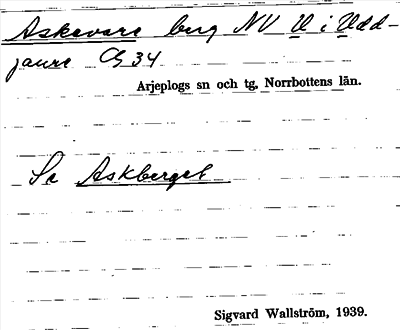 Askavare berg NV U i Udd-
jaure Cg 34
Arjeplogs sn och tg, Norrbottens län.
Se Askberget
Sigvard Wallström, 1939.